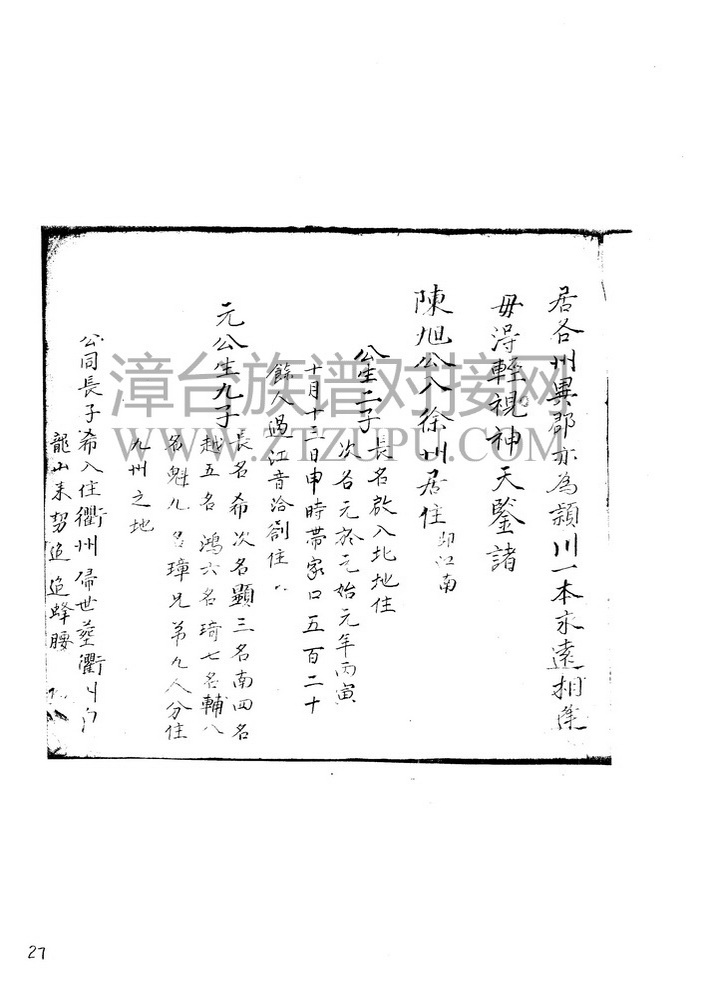 居各州異郡亦為頴川一本永遠相
毋淂輕視神天鑒諸
陳旭公入徐州居住 即江南
公生二子 長名啟入北地住
次名元於元始元年丙寅
十月十三日申時帶家口五百二十
餘人過江音洽劄住
元公生九子 長名希次名顯三名南四名
越五名鴻六名琦七名輔八
名魁九名璋兄弟九人分住
九州之地
公同長子希入住衢州 世塟衢州
龍山来 追追蜂腰
漳台族谱对接网
WWW.ZTZUPU.COM
27